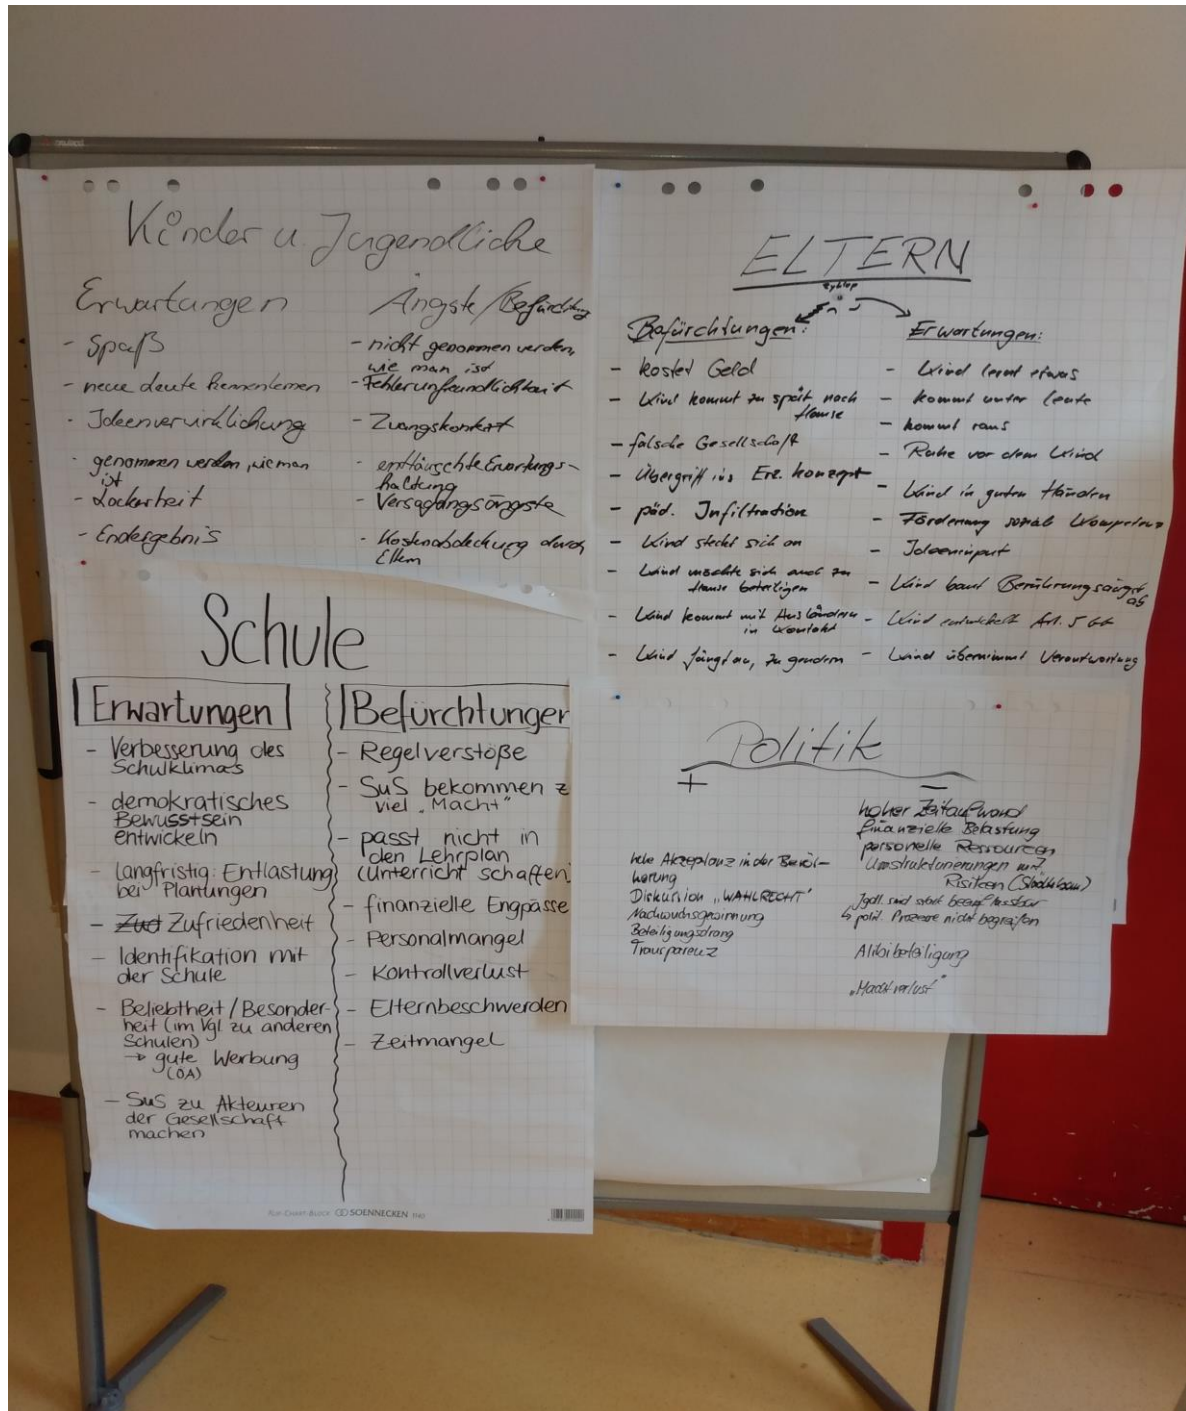 Kinder u. Jugendliche
Erwartungen
- Spaß
- neue Leute kennenlernen
- Ideenverwirklichung
- genommen werden, wie man
ist
- Lockerheit
- Endergebnis
Ängste/Befürchtung
- nicht genommen werden,
wie man ist
- Fehlerunfreundlichkeit
- Zwangskontext
- enttäuschte Erwartungs-
haltung
- Versagungsängste
- Kostenabdeckung durch
Eltern
ELTERN
Befürchtungen:
- kostet Geld
- Kind kommt zu spät nach
Hause
- falsche Gesellschaft
- Übergriff ins Erz. konzept
- päd. Infiltration
- Kind steckt sich an
- Kind möchte sich auch zu
Hause beteiligen
- Kind kommt mit Ausländern
in Kontakt
- Kind fängt an, zu gendern
Erwartungen:
- Kind lernt etwas
- kommt unter Leute
- kommt raus
- Ruhe vor dem Kind
- Kind in guten Händen
- Förderung sozial Kompetenz
- Ideeninput
- Kind baut Berührungsängst
ab
- Kind entwickelt Art. 5 GG
- Kind übernimmt Verantwortung
Schule
Erwartungen
- Verbesserung des
Schulklimas
- demokratisches
Bewusstsein
entwickeln
- langfristig: Entlastung
bei Planungen
- Zud Zufriedenheit
- Identifikation mit
der Schule
- Beliebtheit/Besonder-
heit (im Vgl. zu anderen
Schulen)
→ gute Werbung
(ÖA)
- SuS zu Akteuren
der Gesellschaft
machen
Befürchtunger
- Regelverstöße
- SuS bekommen z
viel „Macht"
- passt nicht in
den Lehrplan
(Unterricht schaffen)
- finanzielle Engpässe
- Personalmangel
- Kontrollverlust
- Elternbeschwerden
- Zeitmangel
FLIP-CHART-BLOCK SOENNECKEN
Politik
+
hohe Akzeptanz in der Bevöl-
kerung
Diskussion „WAHLRECHT"
Nachwuchsgewinnung
Beteiligungsdrang
Transparenz
-
hoher Zeitaufwand
finanzielle Belastung
personelle Ressourcen
Umstrukturierungen
Risiken (Stadtbau)
Jgdl. sind stark beeinflussbar
↳ polit. Prozesse nicht begreifen
Alibibeteiligung
„Machtverlust"